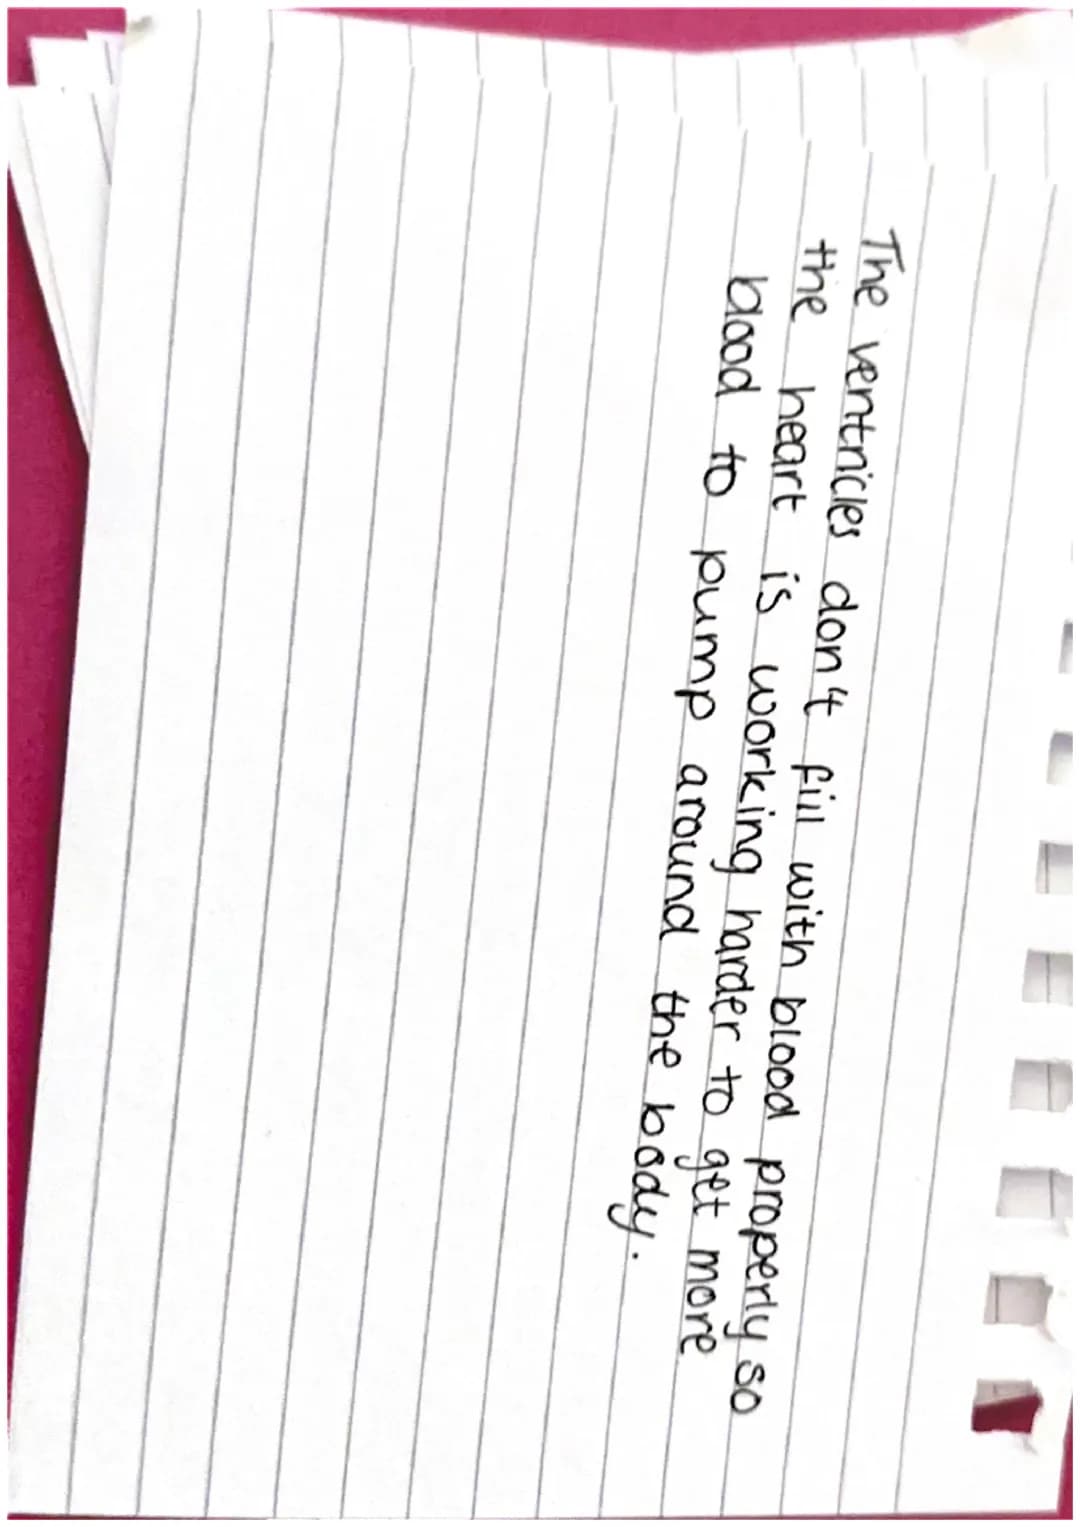 The ventricles don't fill with blood properly so
the heart is working harder to get more
blood to pump around the body.